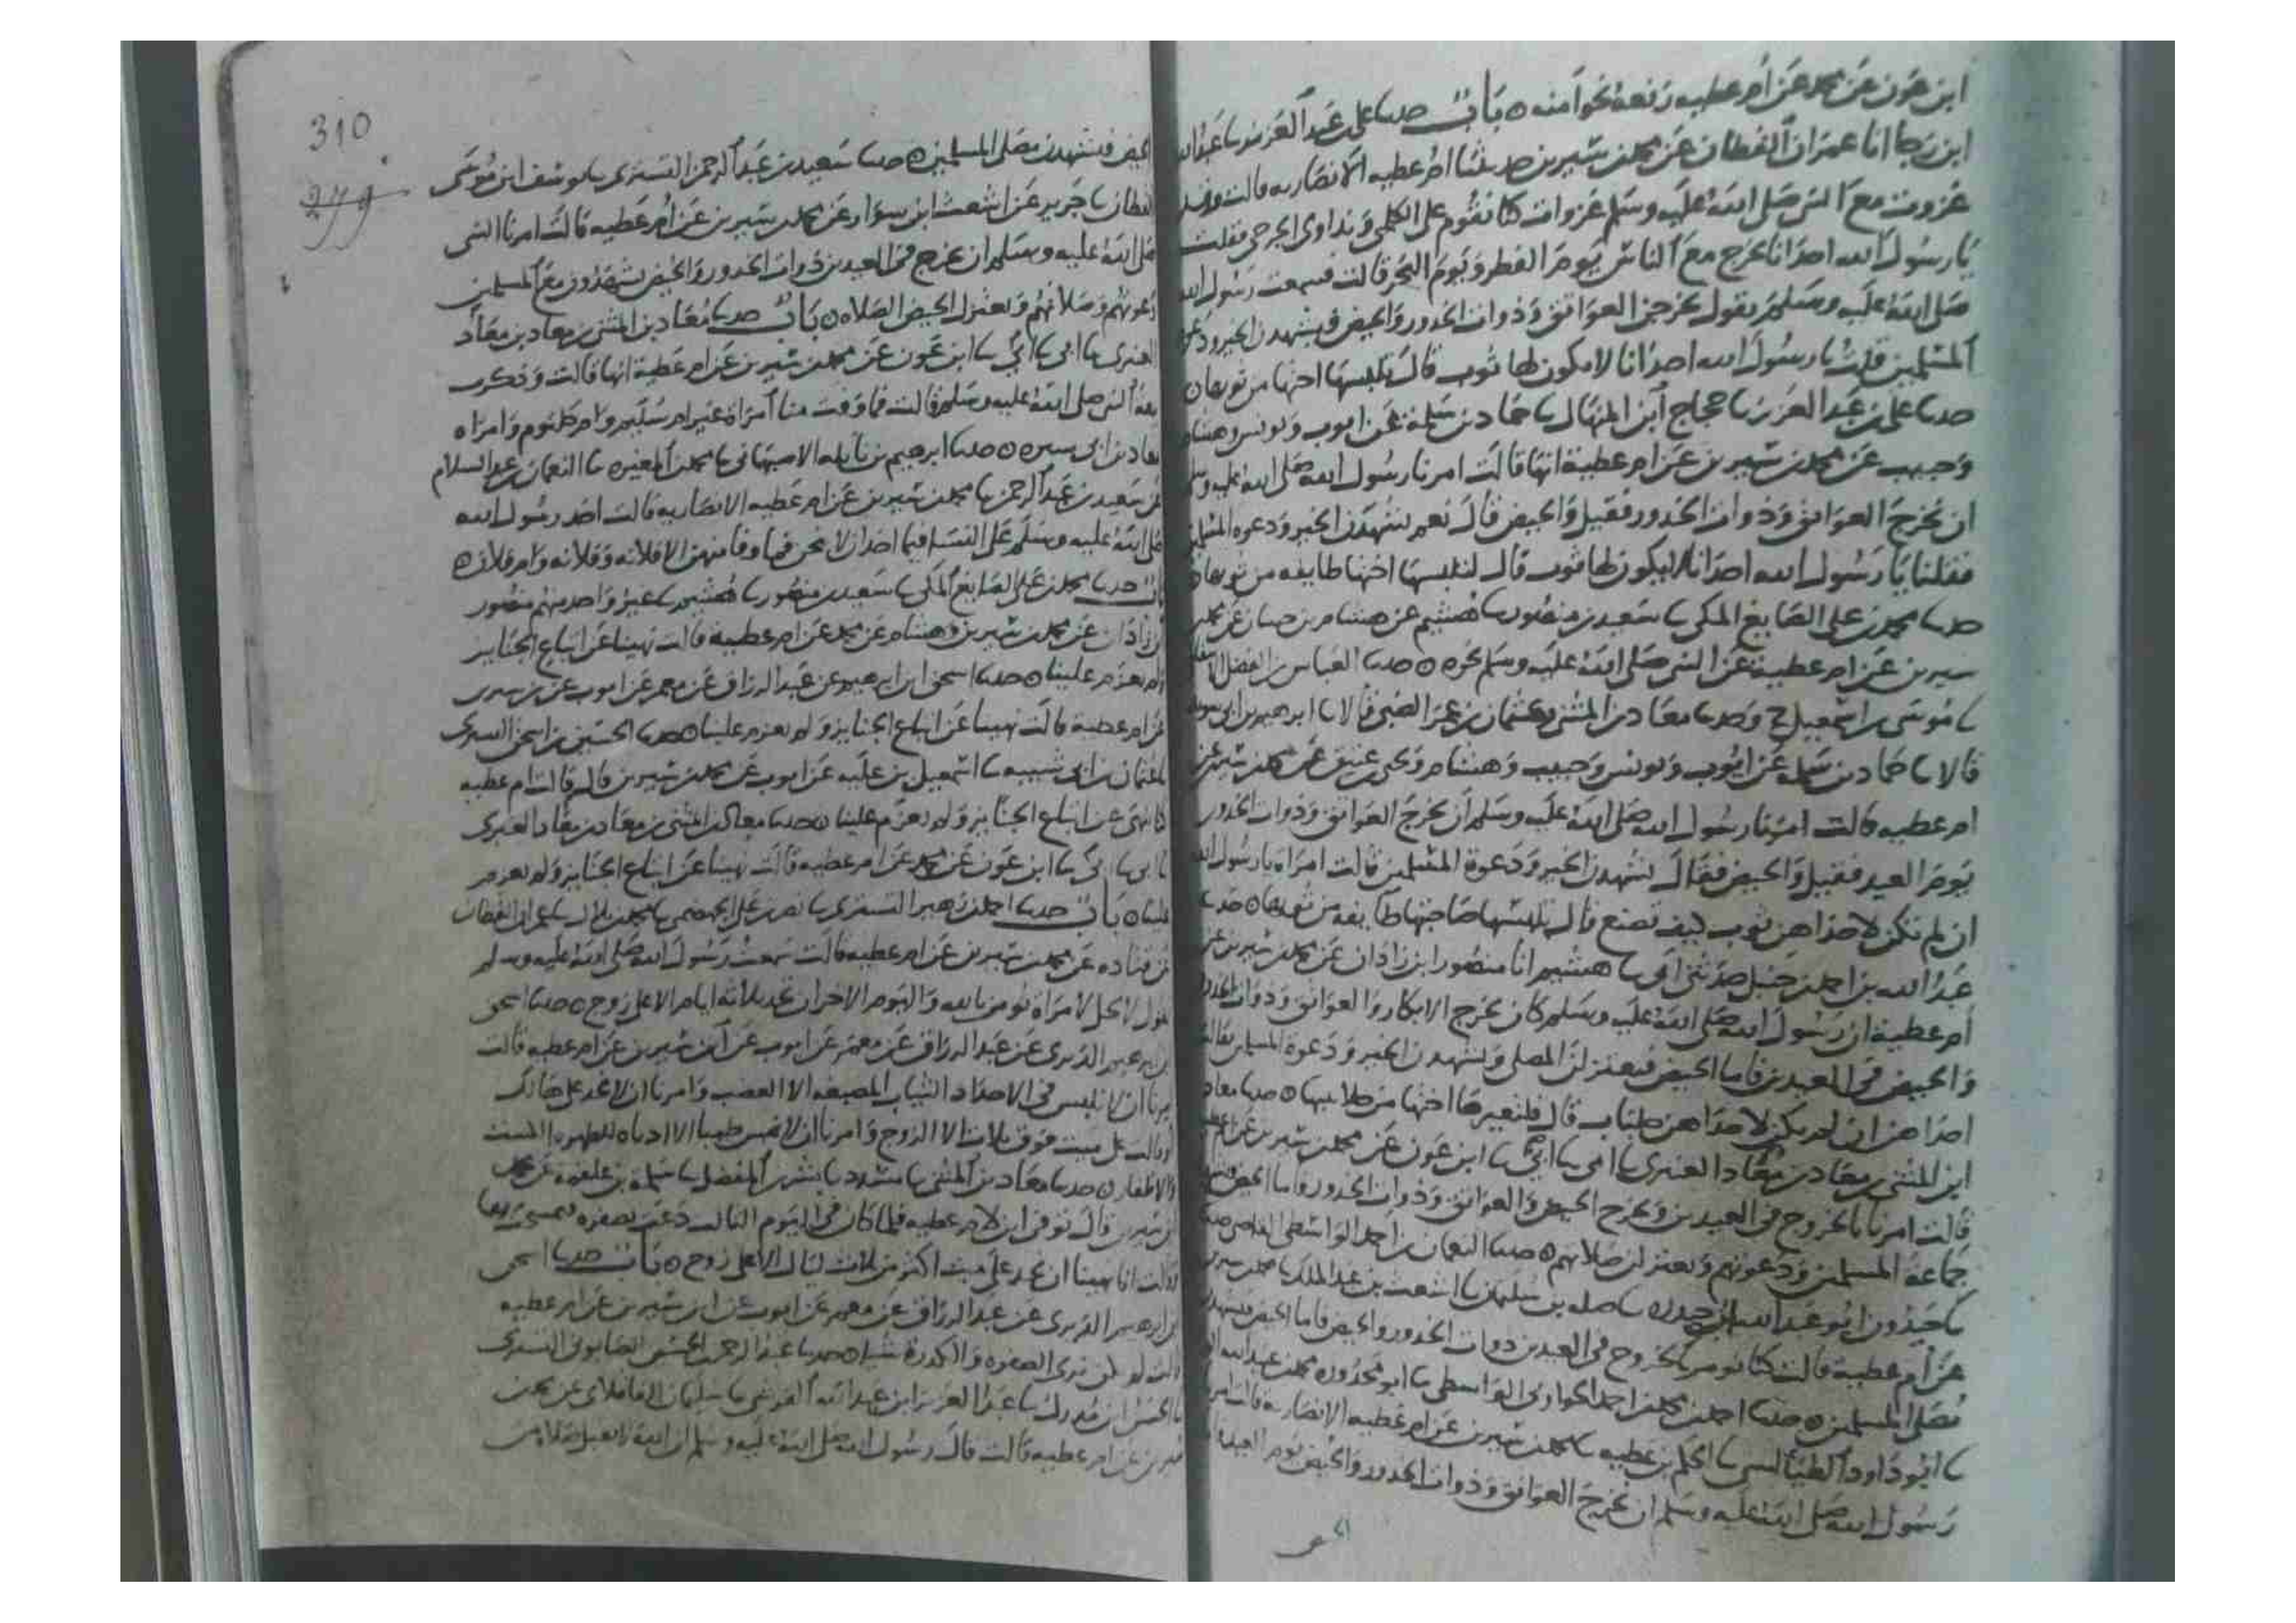 ابن عون عن محمد عن ام عطيه رفعه نحوا منه ه باب حدثنا على بن عبد العزيز ثنا عبد الله
ابن رجا انا عمران القطان عن محمد بن سيرين حدثتنا ام عطيه الانصاريه قالت وقد
غزوت مع النبي صلى الله عليه وسلم غزوات كنا نقوم على الكلمى ونداوى الجرحى فقلت
يا رسول الله احدانا تخرج مع الناس يوم الفطر ويوم النحر قالت فسمعت رسول الله
صلى الله عليه وسلم يقول تخرجن العواتق وذوات الخدور والحيض فيشهدن الخير ودعوة
المسلمين قلت يا رسول الله احدانا لا يكون لها ثوب قال تلبسها اختها من ثوبها ه
حدثنا على بن عبد العزيز ثنا حجاج ابن المنهال ثنا حماد بن سلمة عن ايوب ويونس وهشام
وحبيب عن محمد بن سيرين عن ام عطية انها قالت امرنا رسول الله صلى الله عليه وسلم
ان نخرج العواتق وذوات الخدور فقيل والحيض قال نعم ليشهدن الخير ودعوه المسلمين
فقلنا يا رسول الله احدانا لا يكون لها ثوب قال لتلبسها اختها طايفه من ثوبها ه
حدثنا محمد بن على الصايغ المكى ثنا سعيد بن منصور ثنا هشيم عن هشام بن حسان عن محمد بن
سيرين عن ام عطية عن النبي صلى الله عليه وسلم نحوه ه حدثنا العباس بن الفضل الاسفاطى
ثنا موسى بن اسمعيل ح وحدثنا معاذ بن المثنى وعثمان بن عمر الضبى قالا ثنا ابرهيم بن ابى سويد
قالا ثنا حماد بن سلمه عن ايوب ويونس وحبيب وهشام ويحى بن عتيق عن محمد بن سيرين عن
ام عطيه قالت امرنا رسول الله صلى الله عليه وسلم ان نخرج العواتق وذوات الخدور
يوم العيد فقيل والحيض فقال لتشهدن الخير ودعوة المسلمين قالت امراه يا رسول الله
ان لم تكن لاحداهن ثوب كيف تصنع قال تلبسها صاحبتها طايفه من ثوبها ه حدثنا
عبد الله بن احمد بن حنبل حدثنى ابى ثنا هشيم انا منصور ابن زاذان عن محمد بن سيرين عن
ام عطية ان رسول الله صلى الله عليه وسلم كان يخرج الابكار والعواتق وذوات الخدور
والحيض فى العيدين فاما الحيض فيعتزلن المصلى ويشهدن الخير ودعوة المسلمين فقالت
احداهن ان لم يكن لاحداهن جلباب قال فلتعيرها اختها من جلابيبها ه حدثنا معاذ
ابن المثنى بن معاذ بن معاذ العنبرى ثنا ابى ثنا ابى ثنا ابن عون عن محمد بن سيرين عن ام عطية
قالت امرنا بالخروج فى العيدين ونخرج الحيض والعواتق وذوات الخدور واما الحيض فيشهدن
جماعة المسلمين ودعوتهم ويعتزلن صلاتهم ه حدثنا النعمان بن احمد الواسطى القاضى
عن ام عطية قالت كنا نومر بالخروج فى العيدين ذوات الخدور والحيض فاما الحيض فيشهدن
مصلى المسلمين ه حدثنا احمد بن محمد بن احمد الواسطى ثنا ابو محذوره محمد بن عبيد الله
ثنا ابو داود الطيالسى ثنا الحكم بن عطيه ثنا محمد بن سيرين عن ام عطيه الانصاريه قالت امر
رسول الله صلى الله عليه وسلم ان نخرج العواتق وذوات الخدور والحيض يوم العيد
310
279
الحيض فيشهدن مصلى المسلمين ه حدثنا سعيد بن عبد الرحمن التسترى ثنا يوسف ابن موسى
القطان ثنا جرير عن اشعث ابن سوار عن محمد بن سيرين عن ام عطيه قالت امرنا النبى
صلى الله عليه وسلم ان نخرج فى العيدين ذوات الخدور والحيض يشهدون مع المسلمين
دعوتهم وصلاتهم ويعتزل الحيض الصلاه ه باب حدثنا معاذ بن المثنى بن معاذ بن معاذ
العنبرى ثنا ابى ثنا ابى ثنا ابن عون عن محمد بن سيرين عن ام عطية انها قالت وذكرت
بيعة النبي صلى الله عليه وسلم قالت فما وفت منا امراه غير ام سليم وام كلثوم وامراه
معاذ بن ابى سبره ه حدثنا ابرهيم بن نايله الاصبهانى ثنا محمد بن المغيره ثنا النعمان بن عبد السلام
عن سعيد بن عبد الرحمن ثنا محمد بن سيرين عن ام عطيه الانصاريه قالت اخذ رسول الله
صلى الله عليه وسلم على النساء فيما اخذ ان لا ينحن فما وفا منهن الا فلانه وفلانه وام فلان ه
باب حدثنا محمد بن على الصايغ المكى ثنا سعيد بن منصور ثنا هشيم ثنا غير واحد منهم منصور
بن زاذان عن محمد بن سيرين وهشام عن محمد عن ام عطية قالت نهينا عن اتباع الجنايز
ولم يعزم علينا ه حدثنا اسحق ابن ابرهيم عن عبد الرزاق عن معمر عن ايوب عن بن سيرين
عن ام عطية قالت نهينا عن اتباع الجنايز ولم يعزم علينا ه حدثنا الحسين بن اسحق التسترى
ثنا عثمان بن ابى شيبه ثنا اسمعيل بن عليه عن ايوب عن محمد بن سيرين قال قالت ام عطيه
كنا ننهى عن اتباع الجنايز ولم يعزم علينا ه حدثنا معاذ بن المثنى بن معاذ بن معاذ العنبرى
ثنا ابى ثنا ابى ثنا ابن عون عن محمد عن ام عطيه قالت نهينا عن اتباع الجنايز ولم يعزم
علينا ه باب حدثنا احمد بن زهير التسترى ثنا نصر بن على الجهضمى ثنا محمد بن بلال ثنا عمران القطان
عن قتاده عن محمد بن سيرين عن ام عطيه قالت سمعت رسول الله صلى الله عليه وسلم
يقول لا يحل لامراه تومن بالله واليوم الاخر ان تحد ثلاثه ايام الا على زوج ه حدثنا اسحق
بن ابرهيم الدبرى عن عبد الرزاق عن معمر عن ايوب عن ابن سيرين عن ام عطيه قالت
امرنا ان لا نلبس فى الاحداد الثياب المصبغه الا العصب وامرنا ان لا نحد على هالك
او قالت على ميت فوق ثلاث الا الزوج وامرنا ان لا نمس طيبا الا ادناه للطهره القسط
والاظفار ه حدثنا معاذ بن المثنى ثنا مسدد ثنا بشر بن المفضل ثنا سلمة بن علقمه عن محمد
بن سيرين قال توفى ابن لام عطيه فلما كان فى اليوم الثالث دعت بصفره فمسحت بها
وقالت انا نهينا ان نحد على ميت اكثر من ثلاث ليال الا على زوج ه باب حدثنا اسحق
بن ابرهيم الدبرى عن عبد الرزاق عن معمر عن ايوب عن ابن سيرين عن ام عطيه
قالت لم نكن نرى الصفره والكدرة شيئا ه حدثنا عبد الرحمن بن الحسين الصابونى التسترى
ثنا الحسن ابن مدرك ثنا عبد العزيز ابن عبد الله القرشى ثنا سليمان القافلاى عن محمد بن
سيرين عن ام عطيه قالت قال رسول الله صلى الله عليه وسلم ان الله لا يقبل صلاة من